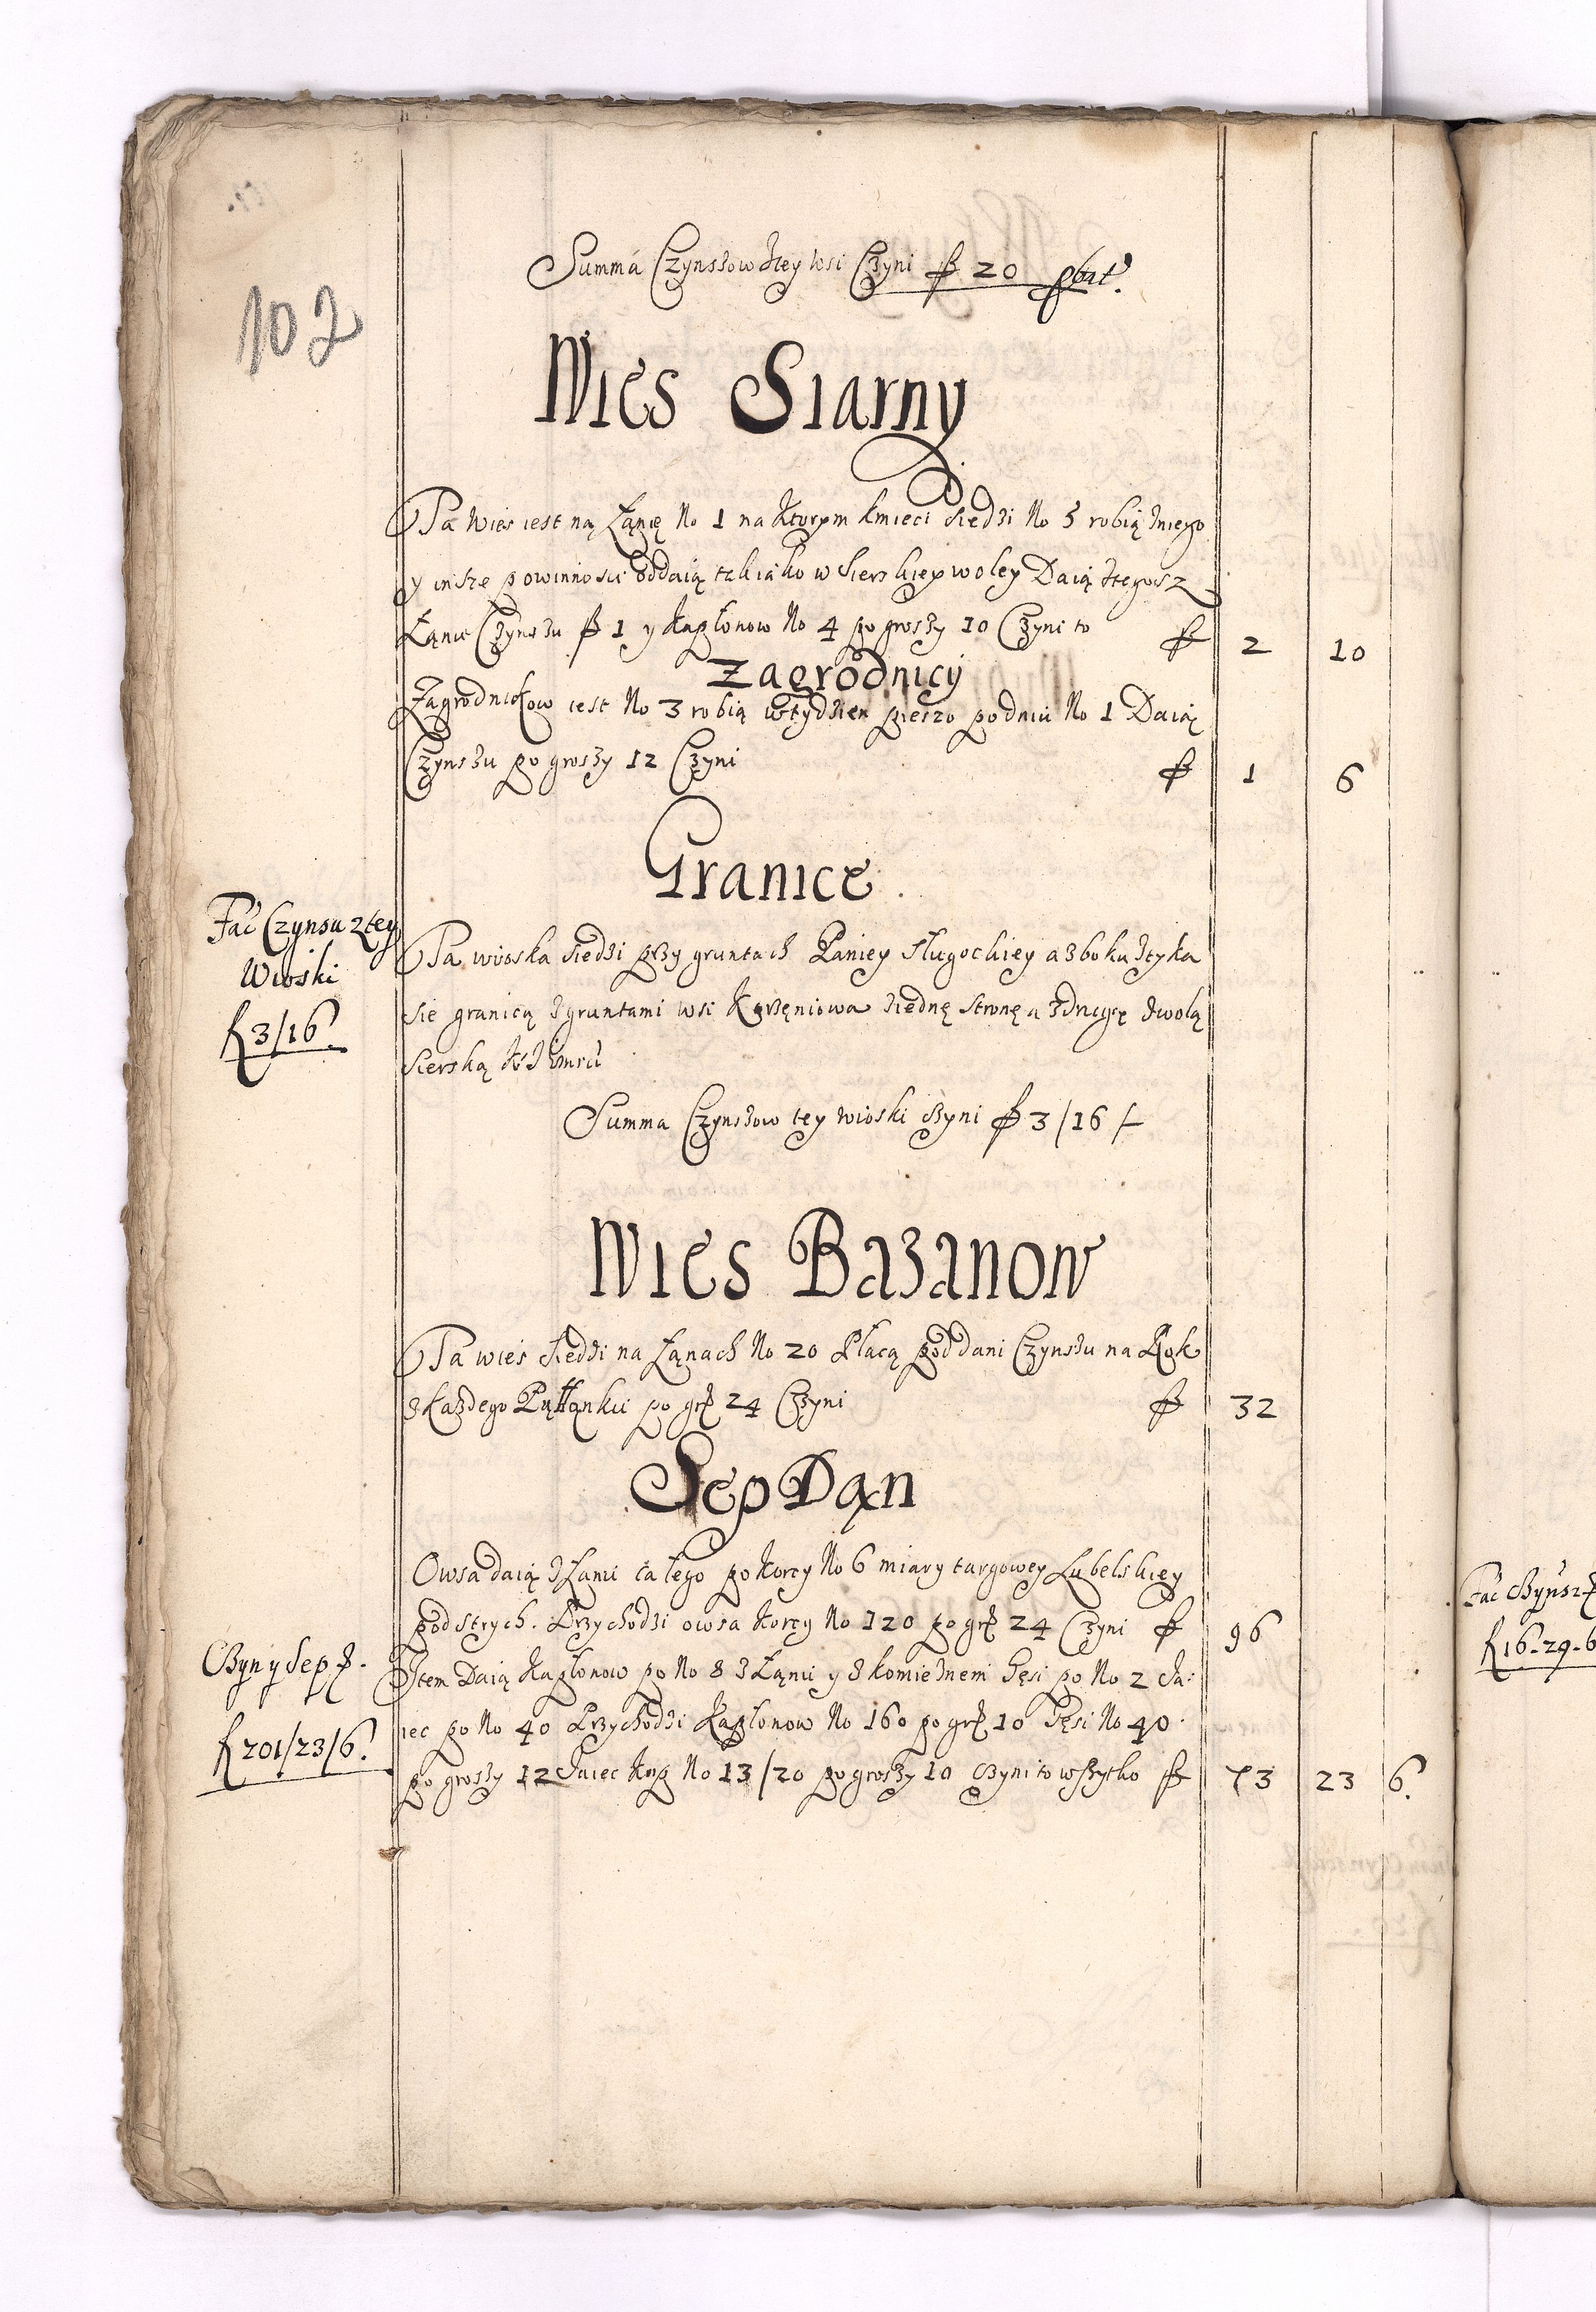 102
Summa Czynszow ztey wsi Czyni fl 20
Wies Siarny
Ta wies iest na Łanię No 1 na Ktorym kmieci siedzi No 3 robią zniego
y insze powinnosci oddaią tak iako w Sierskiey woley Daią ztegosz
Łanu Czynszu fl 1 y Kapłonow No 4 po groszy 10 Czyni to fl 2 10
Zagrodnicy
Zagrodnikow iest No 3 robią wtydzien pieszo podniu No 1 Daią
Czynszu po groszy 12 Czyni fl 1 6
Granice
Fac Czynsu ztey
Wioski
f 3/16
Ta wioska siedzi przy gruntach Paniey Sługockiey a zboku styka
sie granicą zgruntami wsi Korzęniowa ziednę stronę a zdrugę zwolą
sierską
Summa Czynszow tey wioski czyni fl 3/16
Wies Bazanow
Ta wies siedzi na Łanach No 20 Płacą poddani Czynszu na Rok
zKazdego Pułłanku po gr 24 Czyni fl 32
Sep Dan
Owsa daią z Łanu całego po Korcy No 6 miary targowey Lubelskiey
podstrych. Przychodzi owsa Korcy No 120 po gr 24 Czyni fl 96
Czyn y Sep
f 201/23/6
Item Daią Kapłonow po No 8 z Łanu y z komieznemi Gęsi po No 2 Ja:
iec po No 40 Przychodzi Kapłonow No 160 po gr 10 Gęsi No 40
po groszy 12 Jaiec Kop No 13/20 po groszy 10 czyni to wszytko fl 73 23 6.
Fac
f 16-29-6